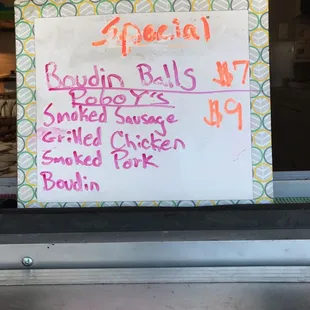 Special
Boudin Balls $7
PoboY's
Smoked Sausage $9
Grilled Chicken
Smoked Pork
Boudin